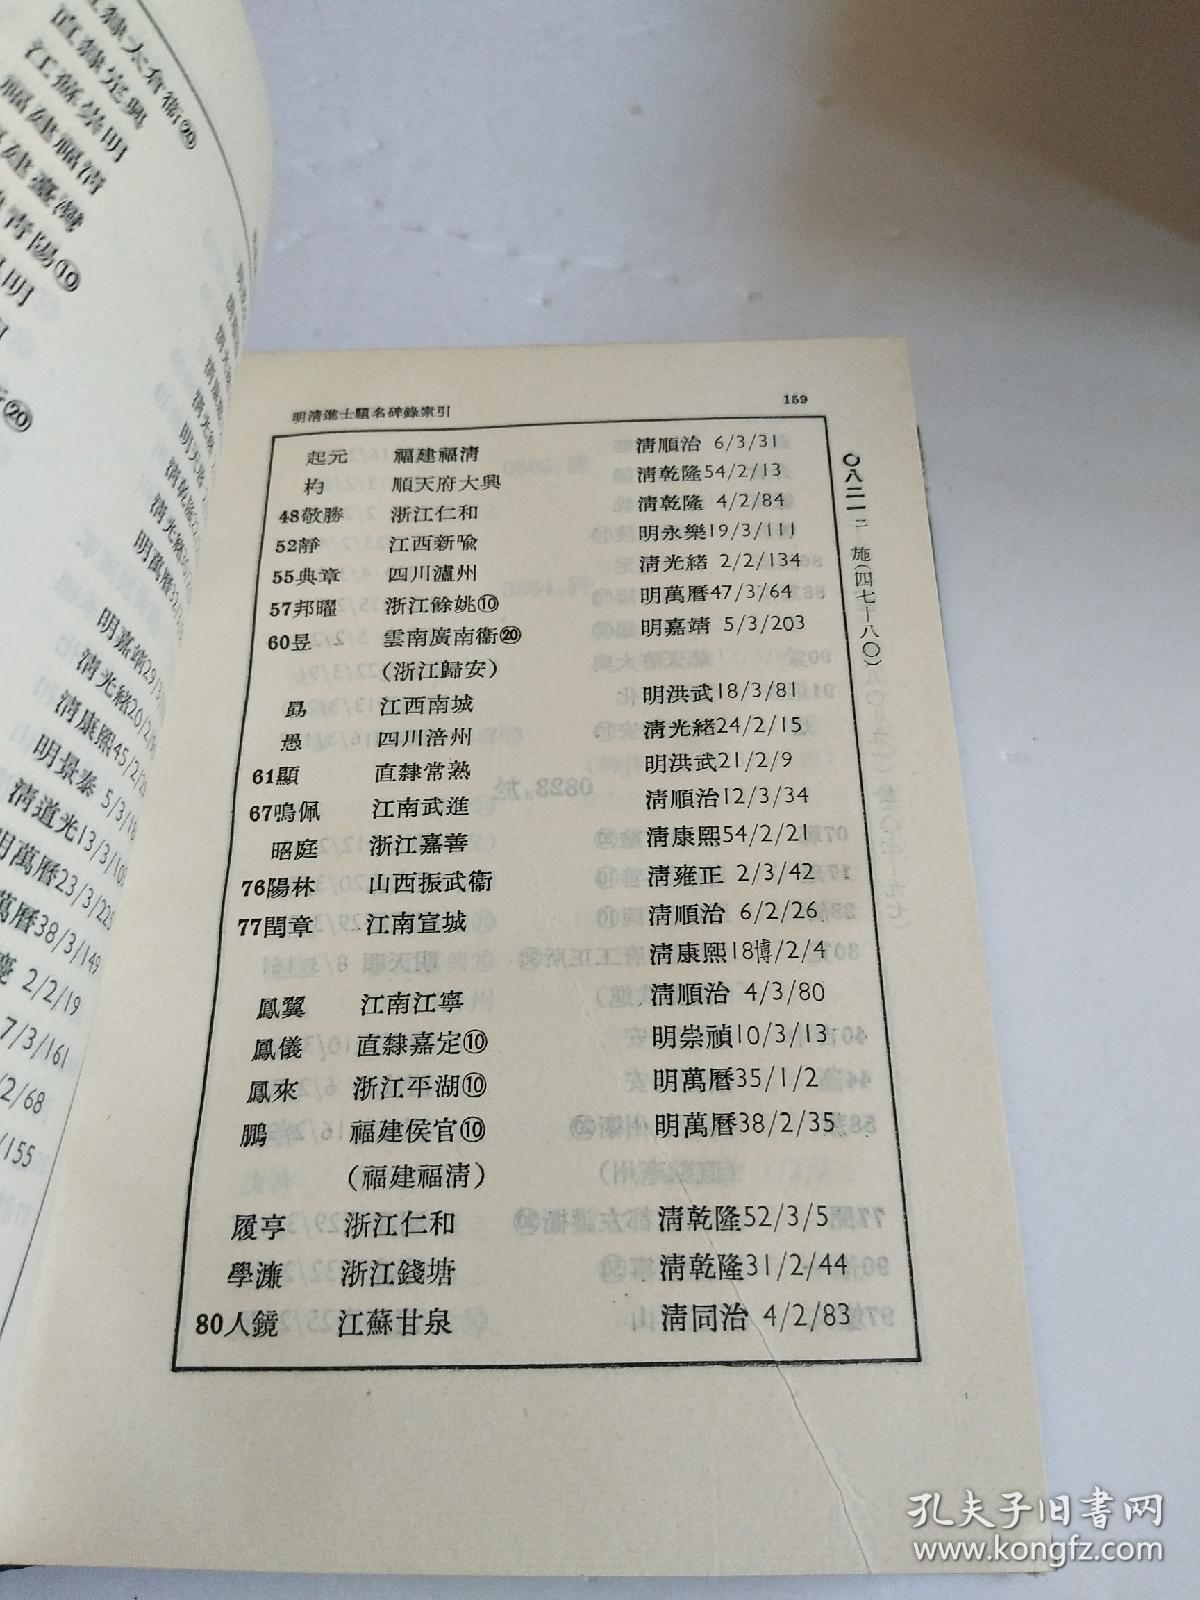 直隸太倉衞⑳
直隸定興
江蘇崇明
福建福清
建臺灣
青陽⑩
明
⑳
明嘉靖29/3
清光緒20/2/9
清康熙45/2/20
明景泰 5/3/18
清道光13/3/109
明萬曆23/3/225
萬曆38/3/149
慶 2/2/19
7/3/161
/2/68
/155
明清進士題名碑錄索引 159
起元 福建福清 清順治 6/3/31
杓 順天府大興 清乾隆54/2/13
48敬勝 浙江仁和 清乾隆 4/2/84
52靜 江西新喩 明永樂19/3/111
55典章 四川瀘州 清光緒 2/2/134
57邦曜 浙江餘姚⑩ 明萬曆47/3/64
60昱 雲南廣南衞⑳ 明嘉靖 5/3/203
(浙江歸安)
勗 江西南城 明洪武18/3/81
愚 四川涪州 清光緒24/2/15
61顯 直隸常熟 明洪武21/2/9
67鳴佩 江南武進 清順治12/3/34
昭庭 浙江嘉善 清康熙54/2/21
76陽林 山西振武衞 清雍正 2/3/42
77閏章 江南宣城 清順治 6/2/26
清康熙18博/2/4
鳳翼 江南江寧 清順治 4/3/80
鳳儀 直隸嘉定⑩ 明崇禎10/3/13
鳳來 浙江平湖⑩ 明萬曆35/1/2
鵬 福建侯官⑩ 明萬曆38/2/35
(福建福清)
履亨 浙江仁和 清乾隆52/3/5
學濂 浙江錢塘 清乾隆31/2/44
80人鏡 江蘇甘泉 清同治 4/2/83
〇八二一二 施(四七—八〇)
孔夫子旧书网
www.kongfz.com